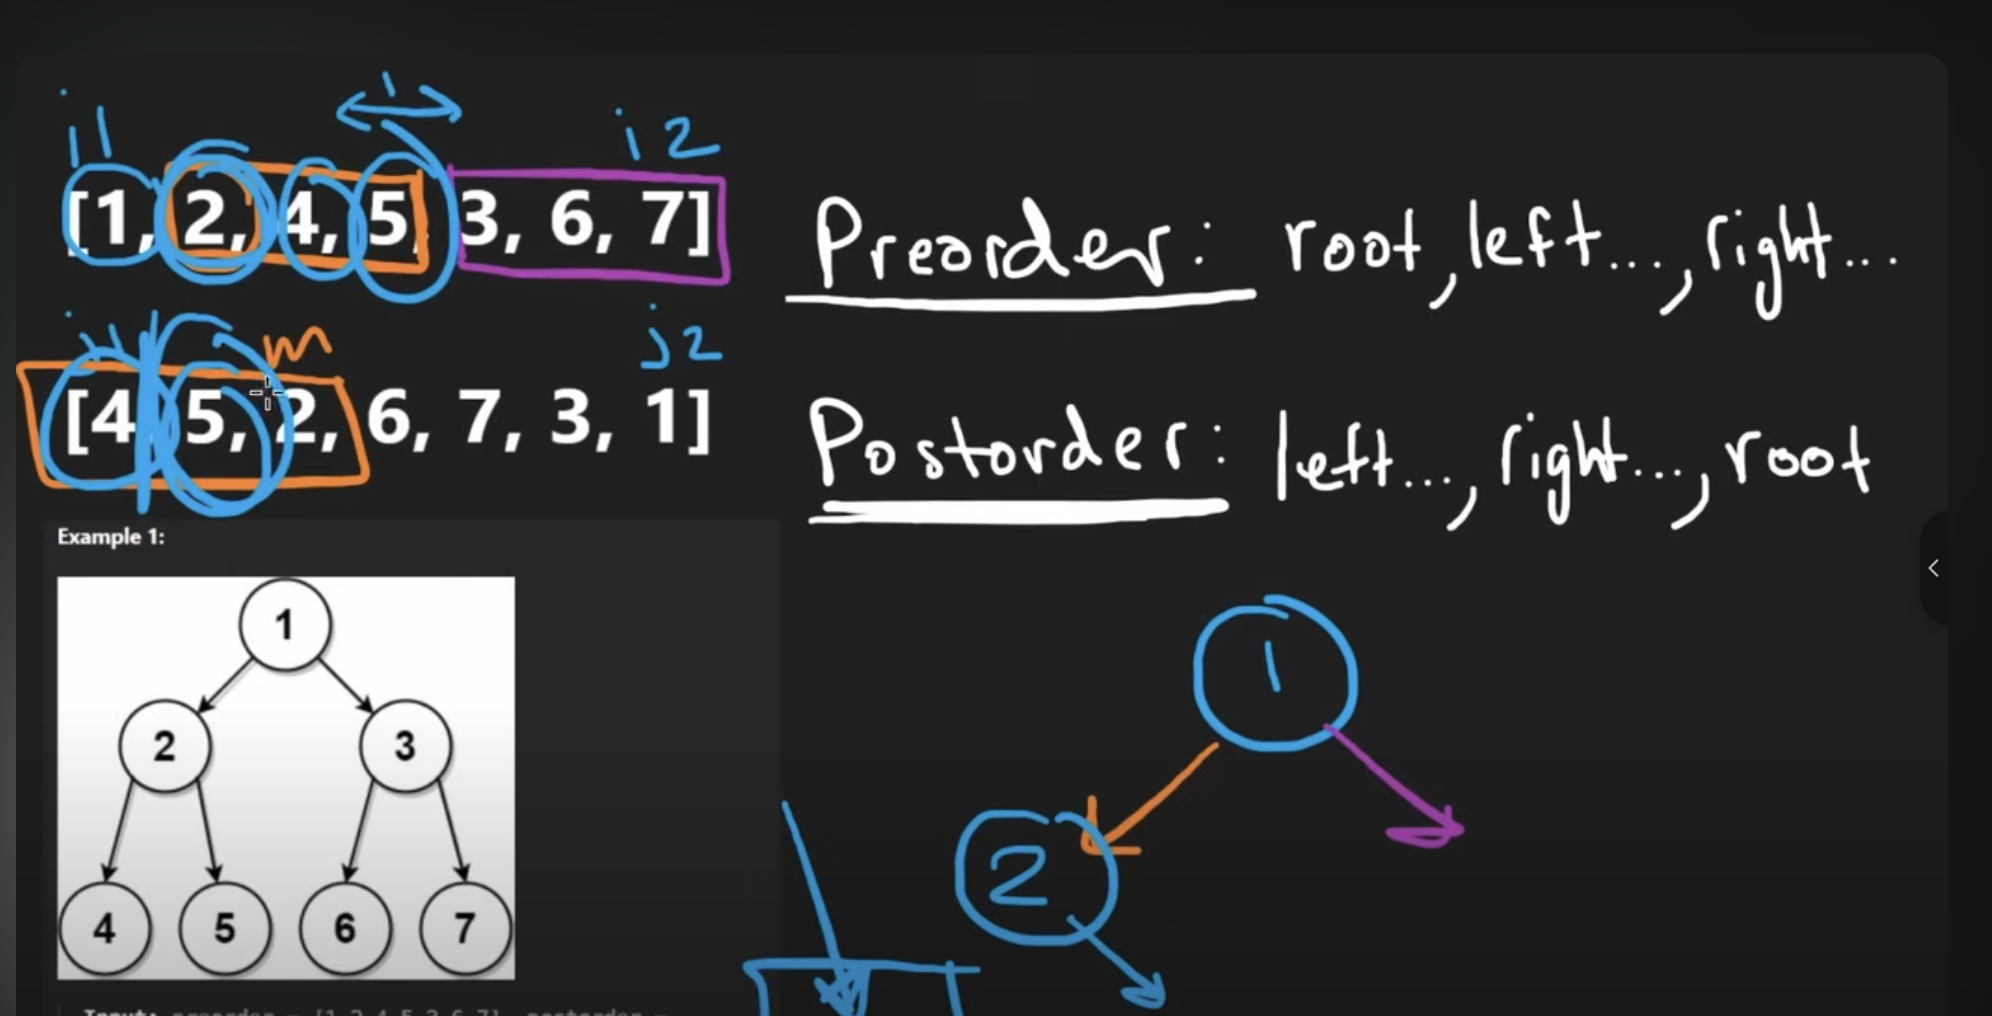 i1 i i2
[1, 2, 4, 5, 3, 6, 7]
Preorder: root, left..., right...
j1 m j2
[4, 5, 2, 6, 7, 3, 1]
Postorder: left..., right..., root
Example 1:
1
2 3
4 5 6 7
1
2
Input: preorder = [1,2,4,5,3,6,7], postorder =